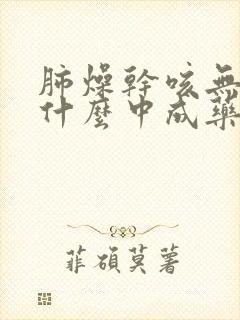 肺燥幹咳無
什麼中成藥
菲碩莫著